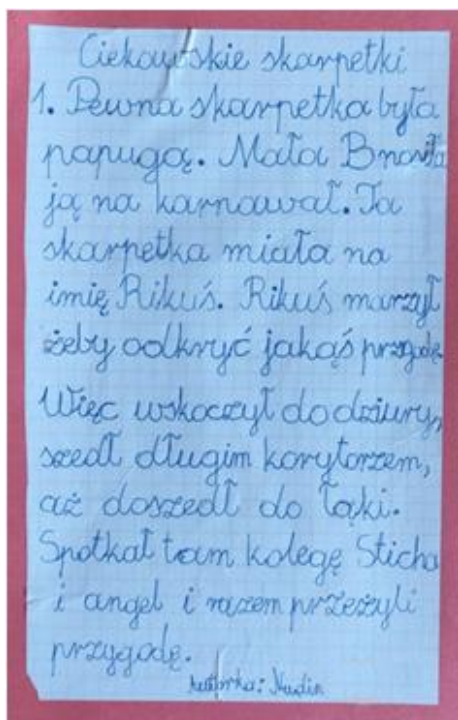 Ciekawskie skarpetki
1. Pewna skarpetka była
papugą. Mała Brała
ją na karnawał. Ta
skarpetka miała na
imię Rikuś. Rikuś marzył
żeby odkryć jakąś przygodę.
Więc wskoczył do dziury,
szedł długim korytorzem,
aż doszedł do łąki.
Spotkał tam kolegę Sticha
i angel i razem przeżyli
przygodę.
Autorka: Nadin